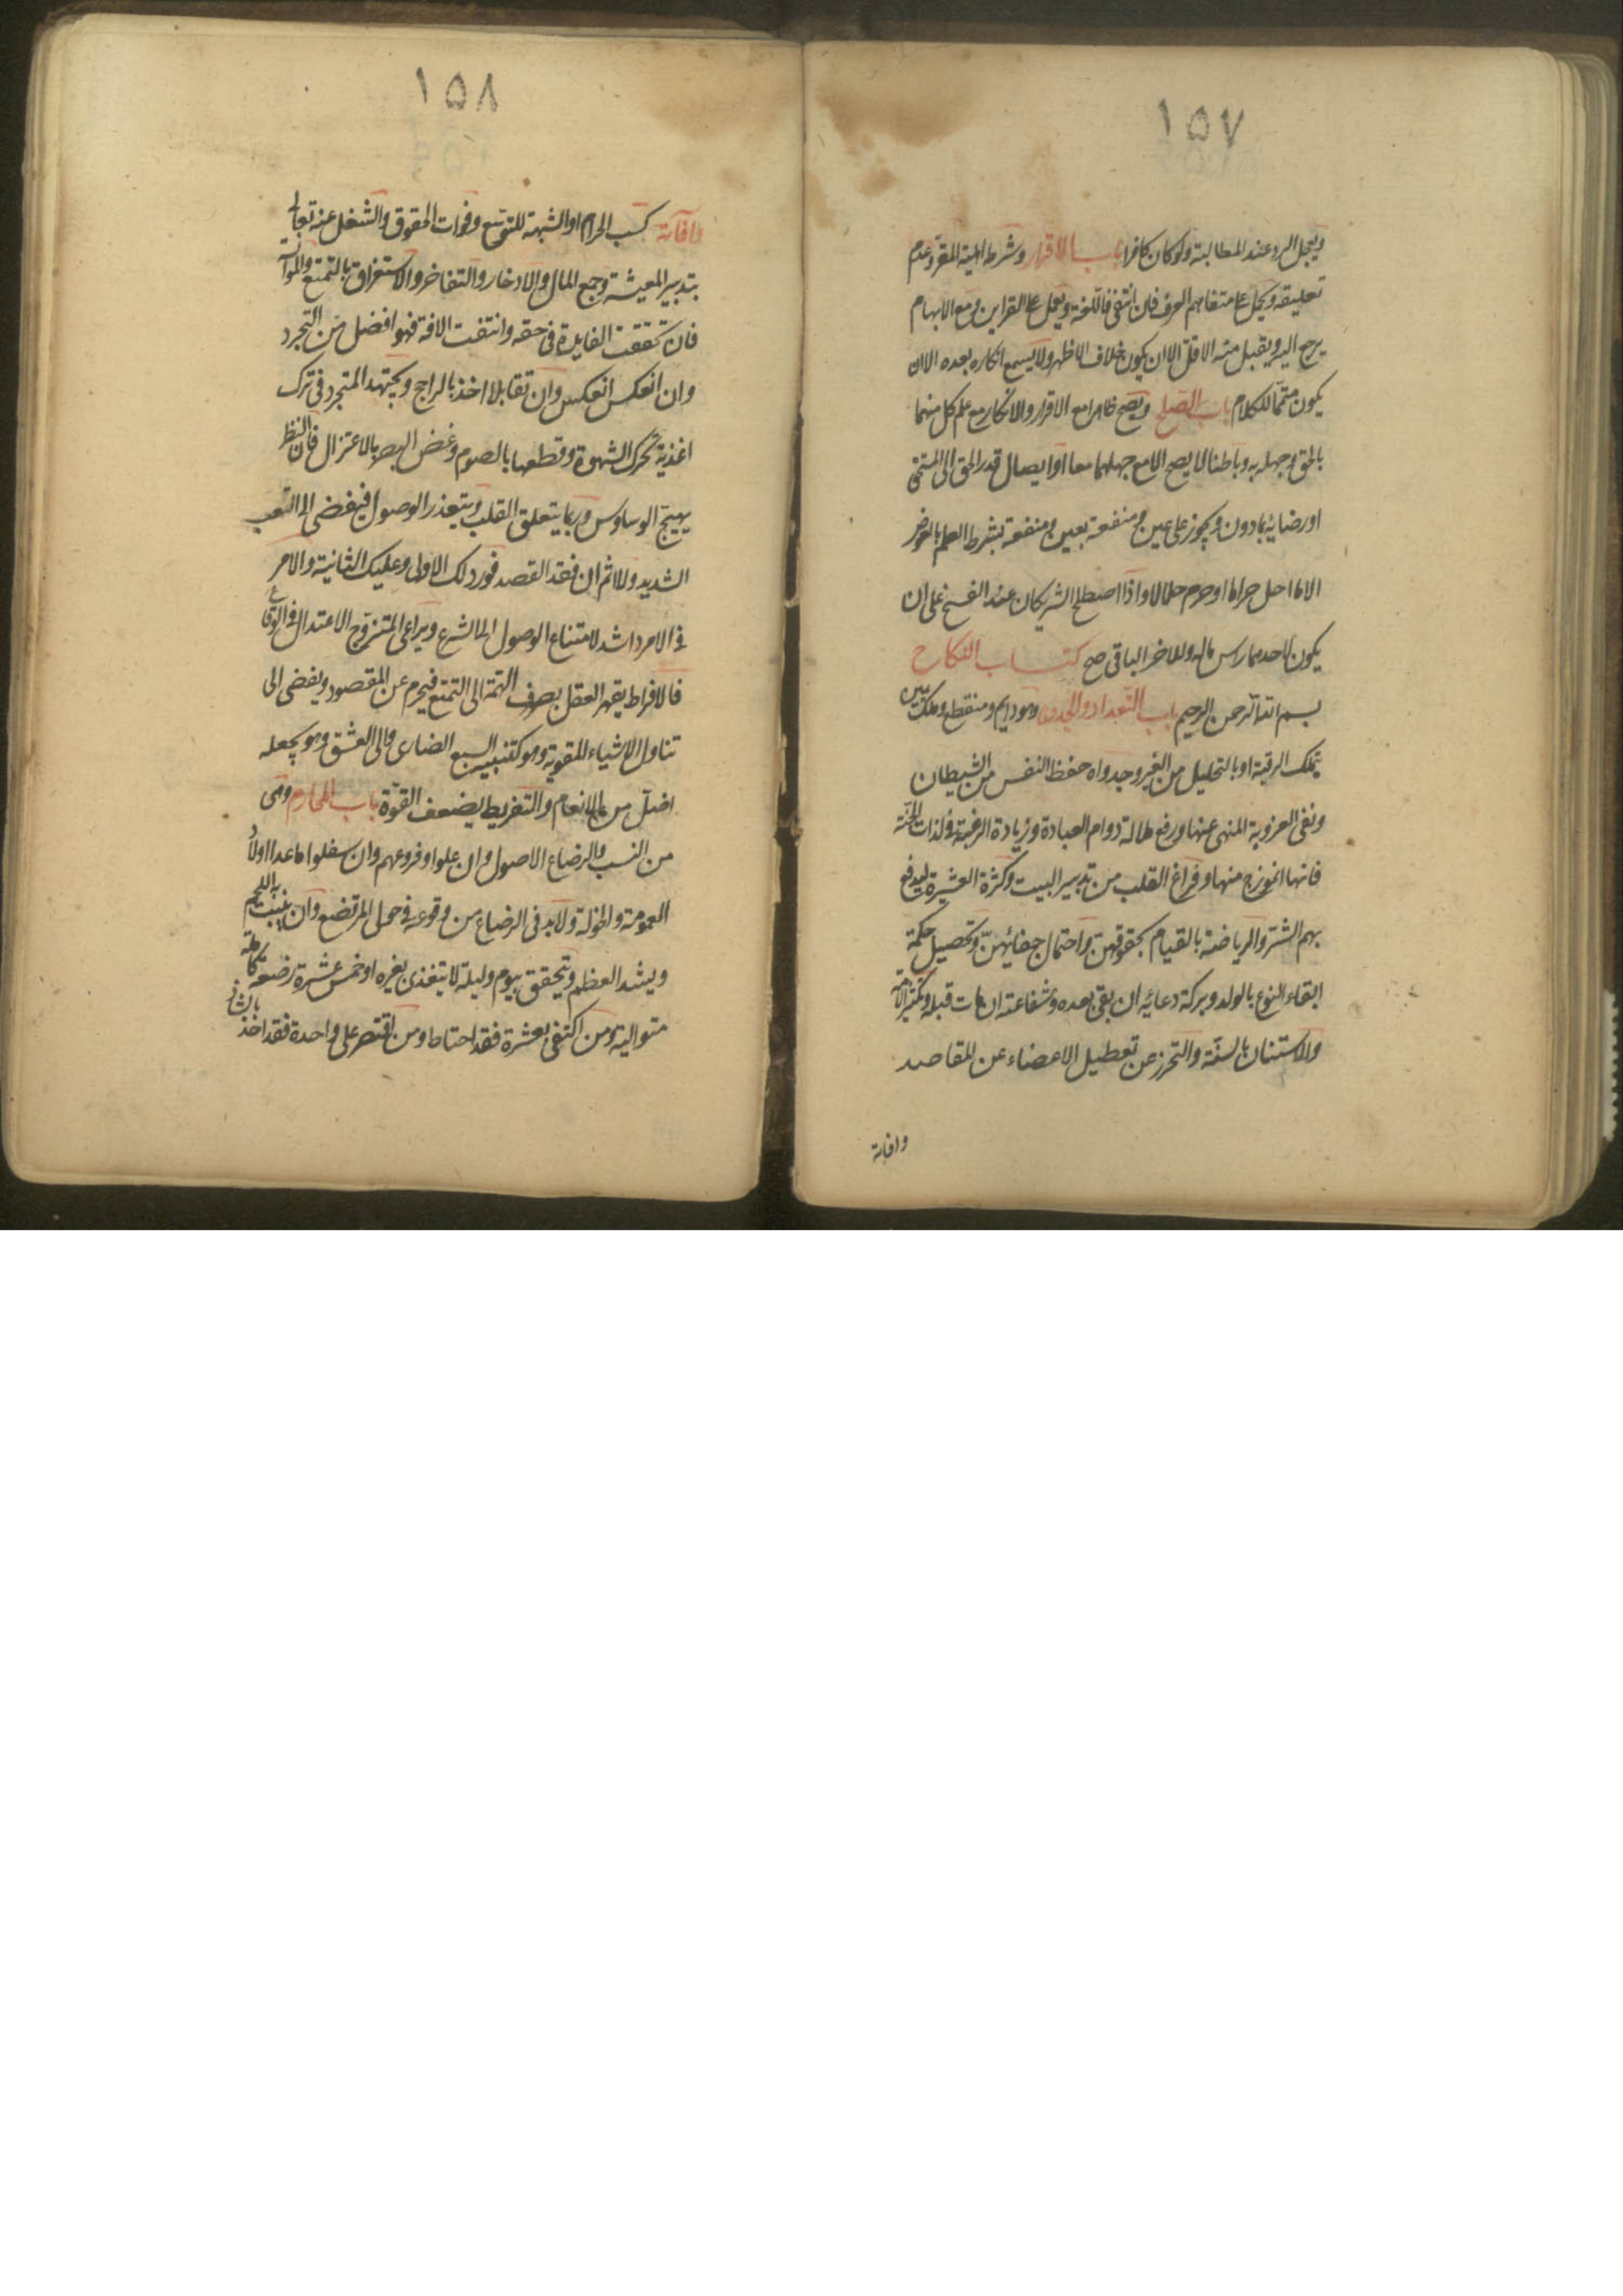 ١٥٧
ويعجل الرد عند المطالبة ولو كان كافرا باب الاقرار وشرطه اهلية المقر وعدم
تعليقه ويحمل على متفاهم العرف فان انتفى فاللغة ويعمل على القراين ومع الابهام
يرجع اليه ويقبل منه الاقل الا ان يكون خلاف الاظهر ولا يسمع انكاره بعده الا ان
يكون متمما للكلام باب الصلح ويصح ظاهرا مع الاقرار والانكار مع علم كل منهما
بالحق وجهله به وباطنا لا يصح الا مع جهلهما معا او ايصال قدر الحق الى المستحق
او رضايه بما دون ويجوز على عين ومنفعة بعين ومنفعة بشرط العلم بالعوض
الا ما احل حراما او حرم حلالا واذا اصطلح الشريكان عند الفسخ على ان
يكون لاحدهما راس ماله وللاخر الباقي صح كتاب النكاح
بسم الله الرحمن الرحيم باب التعداد والجدوى وهو دايم ومنقطع وملك يمين
بتملك الرقبة او بالتحليل من الغير وجدواه حفظ النفس من الشيطان
ونفى العزوبة المنهى عنها ورفع ملالة دوام العبادة وزيادة الرغبة في لذات الجنة
فانها انموذج منها وفراغ القلب من تدبير البيت وكثرة العشيرة ليدفع
بهم الشر والرياضة بالقيام بحقوقهن واحتمال جفائهن وتحصيل حكمة
ابقاء النوع بالولد وبركة دعائه ان بقى بعده وشفاعته ان مات قبله وتكثير الامة
والاستنان بالسنة والتحرز عن تعطيل الاعضاء عن المقاصد
وافاته
١٥٨
وافاته كسب الحرام او الشبهة للتوسع وفوات الحقوق والشغل عنه تعالى
بتدبير المعيشة وجمع المال والادخار والتفاخر والاستغراق بالتمتع
فان تحققت الفايدة في حقه وانتفت الافة فهو افضل من التجرد
وان انعكس انعكس وان تقابلا اخذ بالراجح ويجتهد المتجرد في ترك
اغذية تحرك الشهوة وقطعها بالصوم وغض البصر بالاعتزال فان النظر
يهيج الوساوس وربما يتعلق القلب ويتعذر الوصول فيفضى الى التعب
الشديد وللاثم ان فقد القصد فورد لك الاولى وعليك الثانية والامر
في الامرد اشد لامتناع الوصول الى الشرع ويراعى المتزوج الاعتدال في الوقاع
فالافراط يقهر العقل بصرف الهمة الى التمتع فيحرم عن المقصود ويفضى الى
تناول الاشياء المقوية وهو كتنبيه السبع الضارى والى العشق وهو يجعله
اضل من الانعام والتفريط يضعف القوة باب المحارم وهى
من النسب والرضاع الاصول وان علوا وفروعهم وان سفلوا ما عدا اولاد
العمومة والخؤلة ولا بد في الرضاع من وقوعه في حول المرتضع وان ينبت به اللحم
ويشد العظم ويتحقق بيوم وليلة لا يتغذى بغيره او خمس عشرة رضعة كاملة
متوالية ومن اكتفى بعشرة فقد احتاط ومن اقتصر على واحدة فقد اخذ بالشاذ